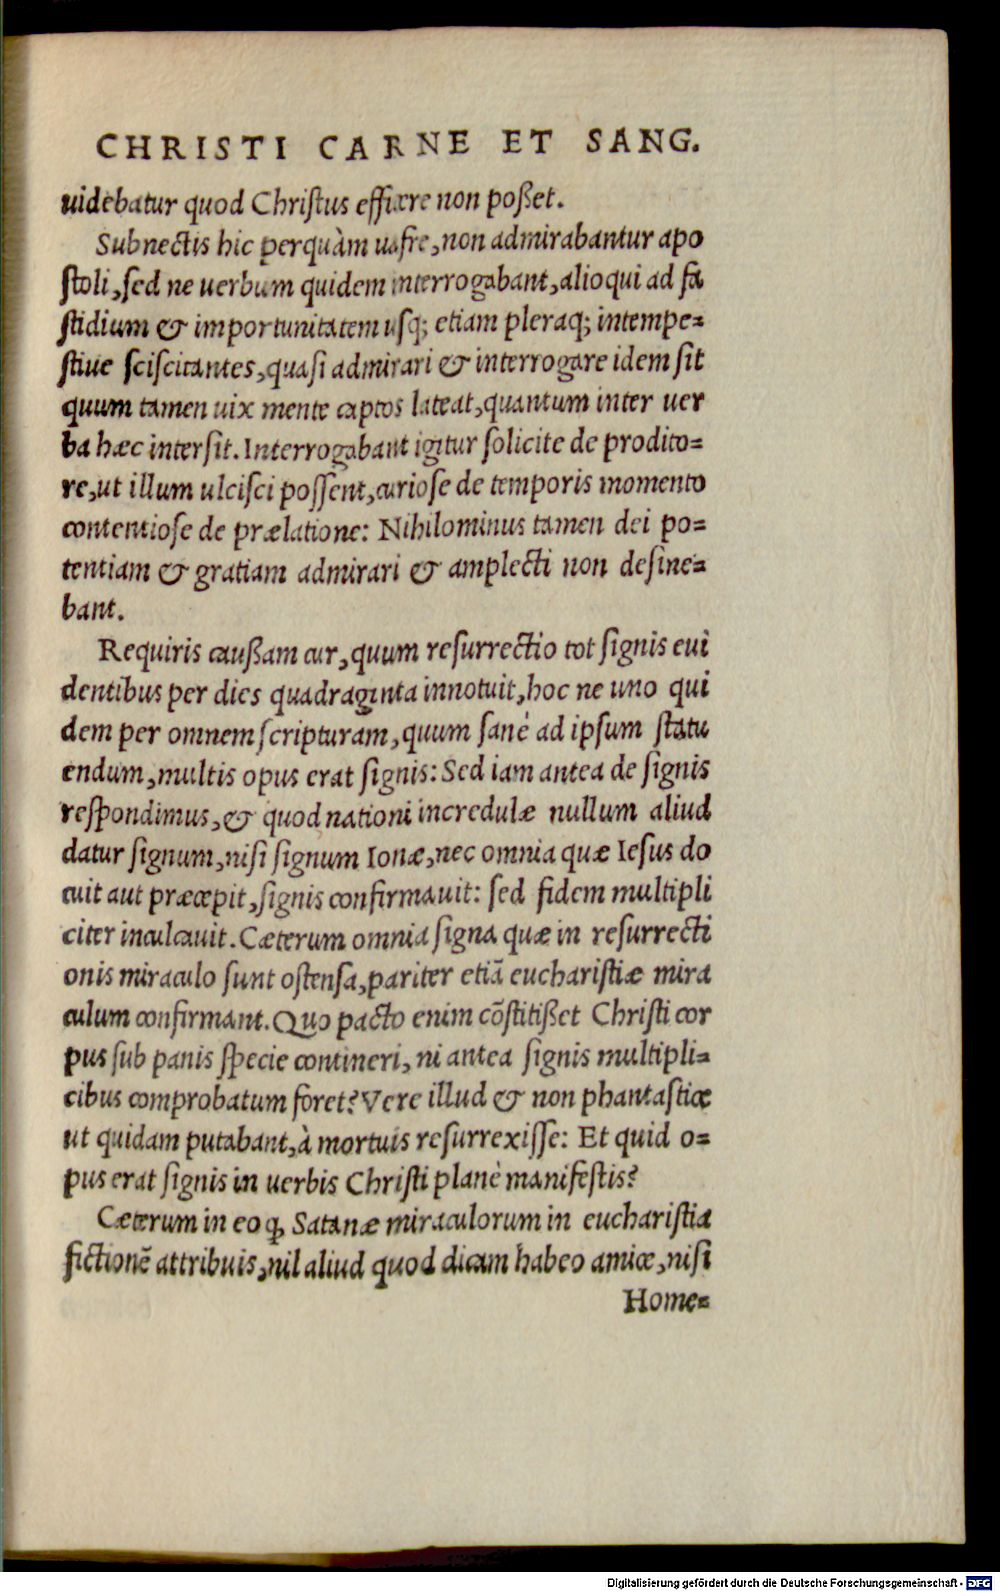 CHRISTI CARNE ET SANG.
uidebatur quod Christus efficere non poßet.
Subnectis hic perquàm uafre, non admirabantur apo
stoli, sed ne uerbum quidem interrogabant, alioqui ad fa
stidium & importunitatem usq; etiam pleraq; intempe=
stiue sciscitantes, quasi admirari & interrogare idem sit
quum tamen uix mente captos lateat, quantum inter uer
ba hæc intersit. Interrogabant igitur solicite de prodito=
re, ut illum ulcisci possent, curiose de temporis momento
contentiose de prælatione: Nihilominus tamen dei po=
tentiam & gratiam admirari & amplecti non desine=
bant.
Requiris caußam cur, quum resurrectio tot signis eui
dentibus per dies quadraginta innotuit, hoc ne uno qui
dem per omnem scripturam, quum sanè ad ipsum statu
endum, multis opus erat signis: Sed iam antea de signis
respondimus, & quod nationi incredulæ nullum aliud
datur signum, nisi signum Ionæ, nec omnia quæ Iesus do
cuit aut præcepit, signis confirmauit: sed fidem multipli
citer inculcauit. Cæterum omnia signa quæ in resurrecti
onis miraculo sunt ostensa, pariter etiã eucharistiæ mira
culum confirmant. Quo pacto enim cõstitißet Christi cor
pus sub panis specie contineri, ni antea signis multipli=
cibus comprobatum foret? Vere illud & non phantastice
ut quidam putabant, à mortuis resurrexisse: Et quid o=
pus erat signis in uerbis Christi planè manifestis?
Cæterum in eo ꝙ Satanæ miraculorum in eucharistia
fictionẽ attribuis, nil aliud quod dicam habeo amice, nisi
Home=
Digitalisierung gefördert durch die Deutsche Forschungsgemeinschaft - DFG